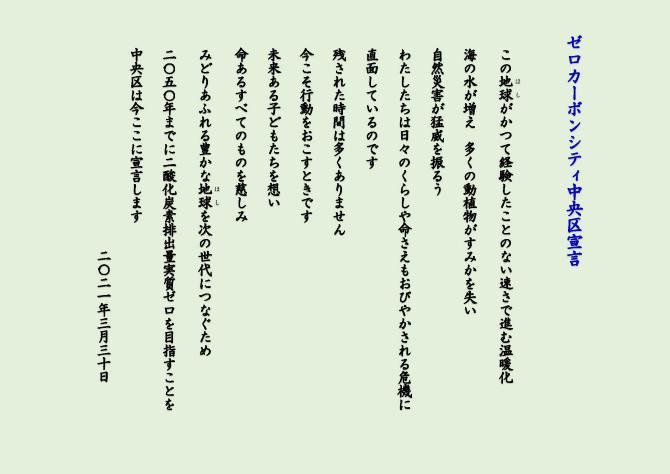 ゼロカーボンシティ中央区宣言
この地球がかつて経験したことのない速さで進む温暖化
海の水が増え　多くの動植物がすみかを失い
自然災害が猛威を振るう
わたしたちは日々のくらしや命さえもおびやかされる危機に
直面しているのです
残された時間は多くありません
今こそ行動をおこすときです
未来ある子どもたちを想い
命あるすべてのものを慈しみ
みどりあふれる豊かな地球を次の世代につなぐため
二〇五〇年までに二酸化炭素排出量実質ゼロを目指すことを
中央区は今ここに宣言します
二〇二一年三月三十日